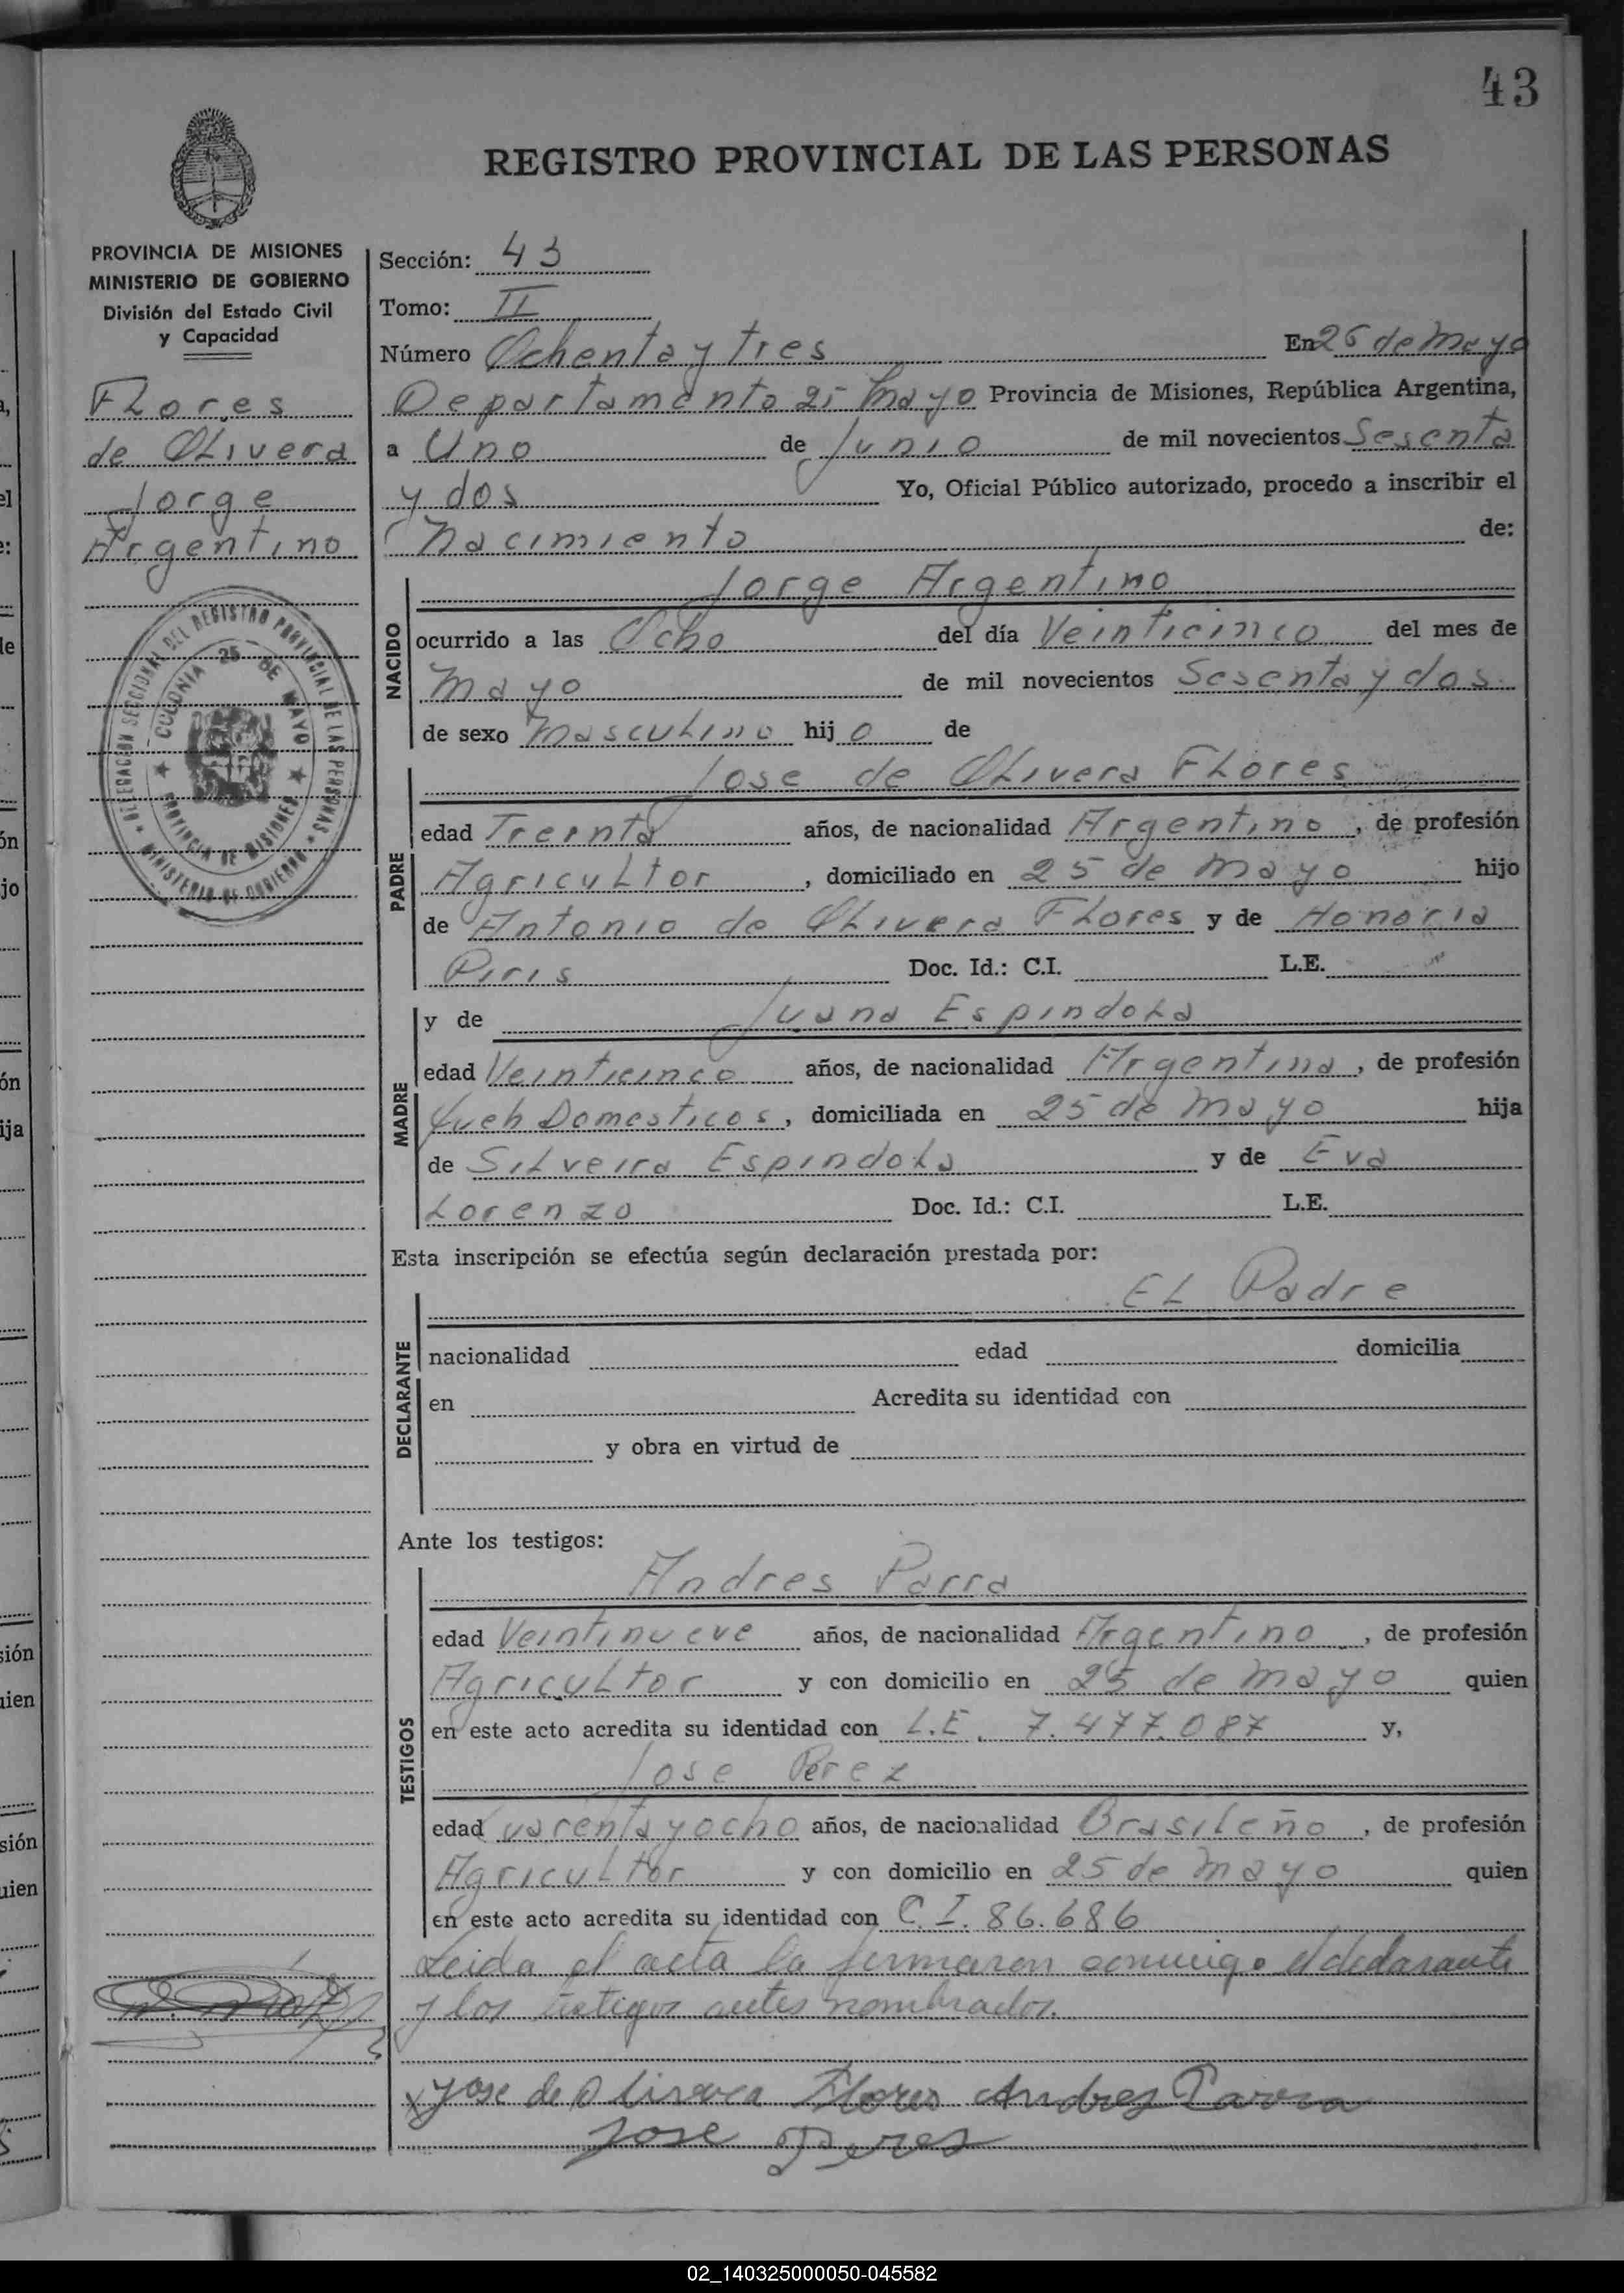 43
REGISTRO PROVINCIAL DE LAS PERSONAS
PROVINCIA DE MISIONES
MINISTERIO DE GOBIERNO
División del Estado Civil
y Capacidad
Flores
de Olivera
Jorge
Argentino
DELEGACION SECCIONAL DEL REGISTRO PROVINCIAL DE LAS PERSONAS
MINISTERIO DE GOBIERNO
COLONIA 25 DE MAYO
PROVINCIA DE MISIONES
Sección: 43
Tomo: II
Número Ochenta y tres En 25 de Mayo
Departamento 25 Mayo Provincia de Misiones, República Argentina,
a Uno de Junio de mil novecientos Sesenta
y dos Yo, Oficial Público autorizado, procedo a inscribir el
Nacimiento de:
NACIDO
Jorge Argentino
ocurrido a las Ocho del día Veinticinco del mes de
Mayo de mil novecientos Sesenta y dos
de sexo Masculino hij o de
PADRE
Jose de Olivera Flores
edad Treinta años, de nacionalidad Argentino, de profesión
Agricultor, domiciliado en 25 de Mayo hijo
de Antonio de Olivera Flores y de Honoria
Piris Doc. Id.: C.I. L.E.
MADRE
y de Juana Espindola
edad Veinticinco años, de nacionalidad Argentina, de profesión
Domesticos, domiciliada en 25 de Mayo hija
de Silveira Espindola y de Eva
Lorenzo Doc. Id.: C.I. L.E.
Esta inscripción se efectúa según declaración prestada por:
DECLARANTE
El Padre
nacionalidad edad domicilia
en Acredita su identidad con
y obra en virtud de
Ante los testigos:
TESTIGOS
Andres Parra
edad Veintinueve años, de nacionalidad Argentino, de profesión
Agricultor y con domicilio en 25 de Mayo quien
en este acto acredita su identidad con L.E. 7.477.087 y,
Jose Perez
edad Cuarenta y ocho años, de nacionalidad Brasileño, de profesión
Agricultor y con domicilio en 25 de Mayo quien
en este acto acredita su identidad con C.I. 86.686
Leida el acta la firmaron conmigo el declarante
y los testigos antes nombrados.
x Jose de Olivera Flores Andres Parra
Jose Peres
02_140325000050-045582